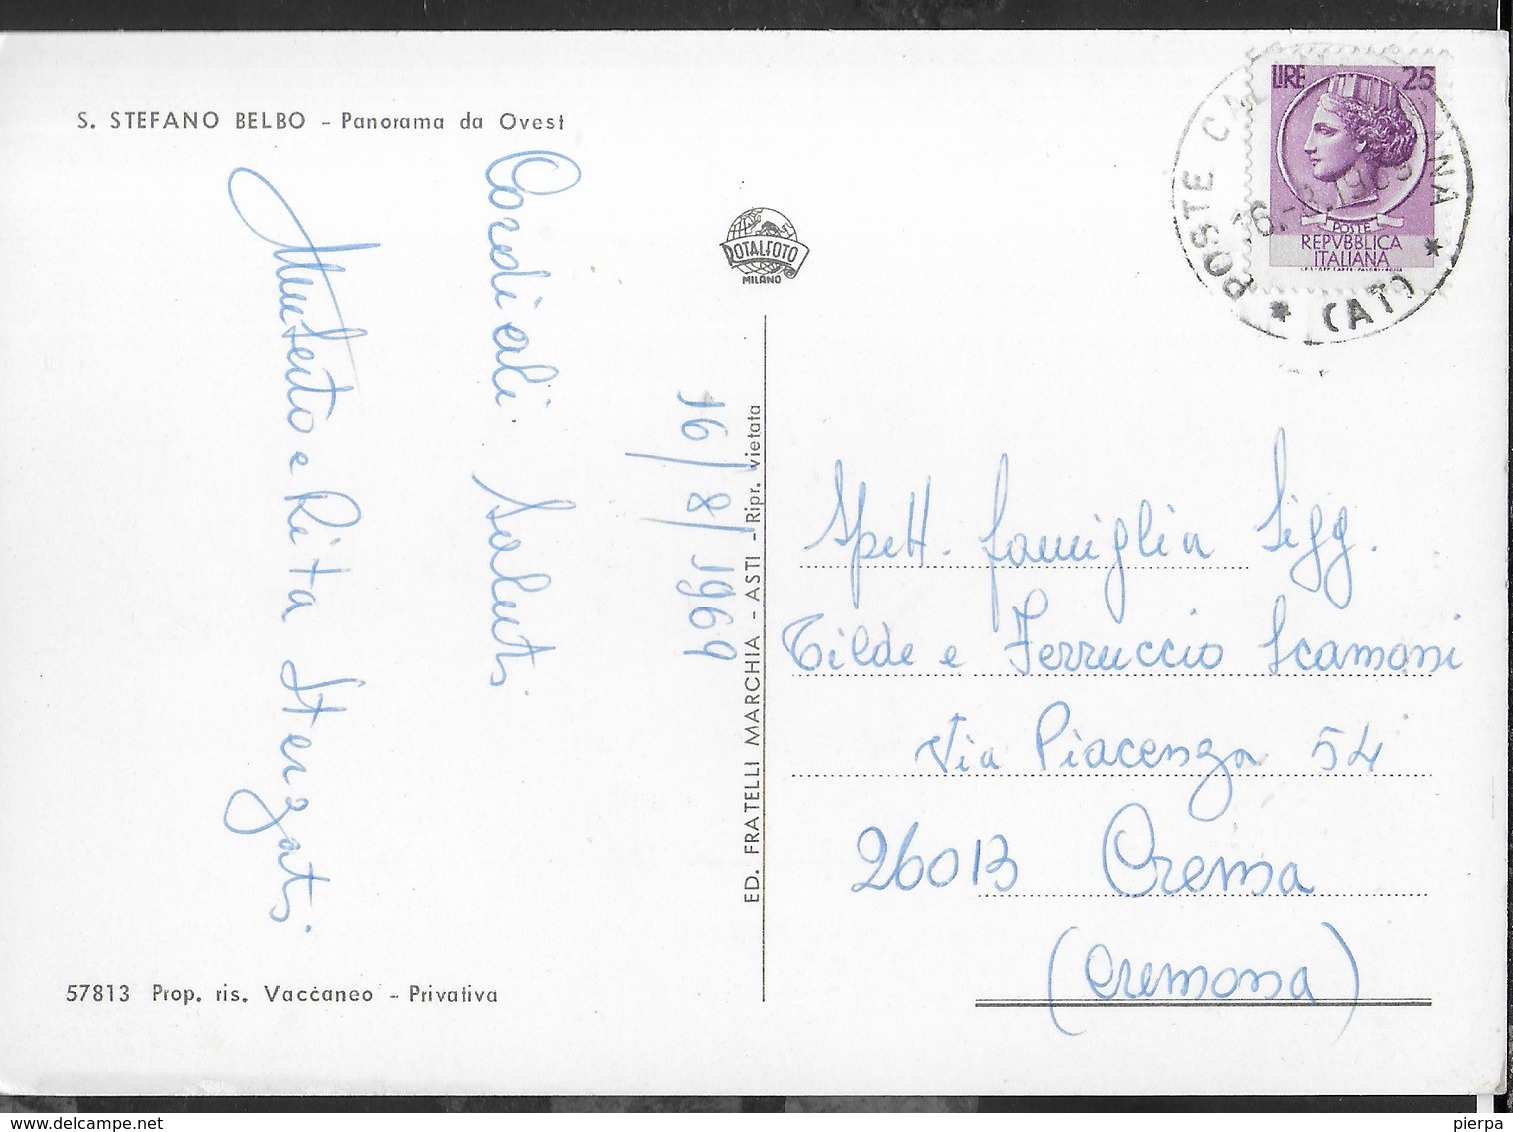 S. STEFANO BELBO - Panorama da Ovest
Cordiali Saluti
Umberto e Rita Sterzati
16/8/1969
57813 Prop. ris. Vaccaneo - Privativa
ROTALFOTO
MILANO
ED. FRATELLI MARCHIA - ASTI - Ripr. vietata
LIRE 25
POSTE
REPVBBLICA
ITALIANA
POSTE
(AT)
Spett. famiglia Sigg.
Tilde e Ferruccio Scamoni
Via Piacenza 54
26013 Crema
(Cremona)
pierpa